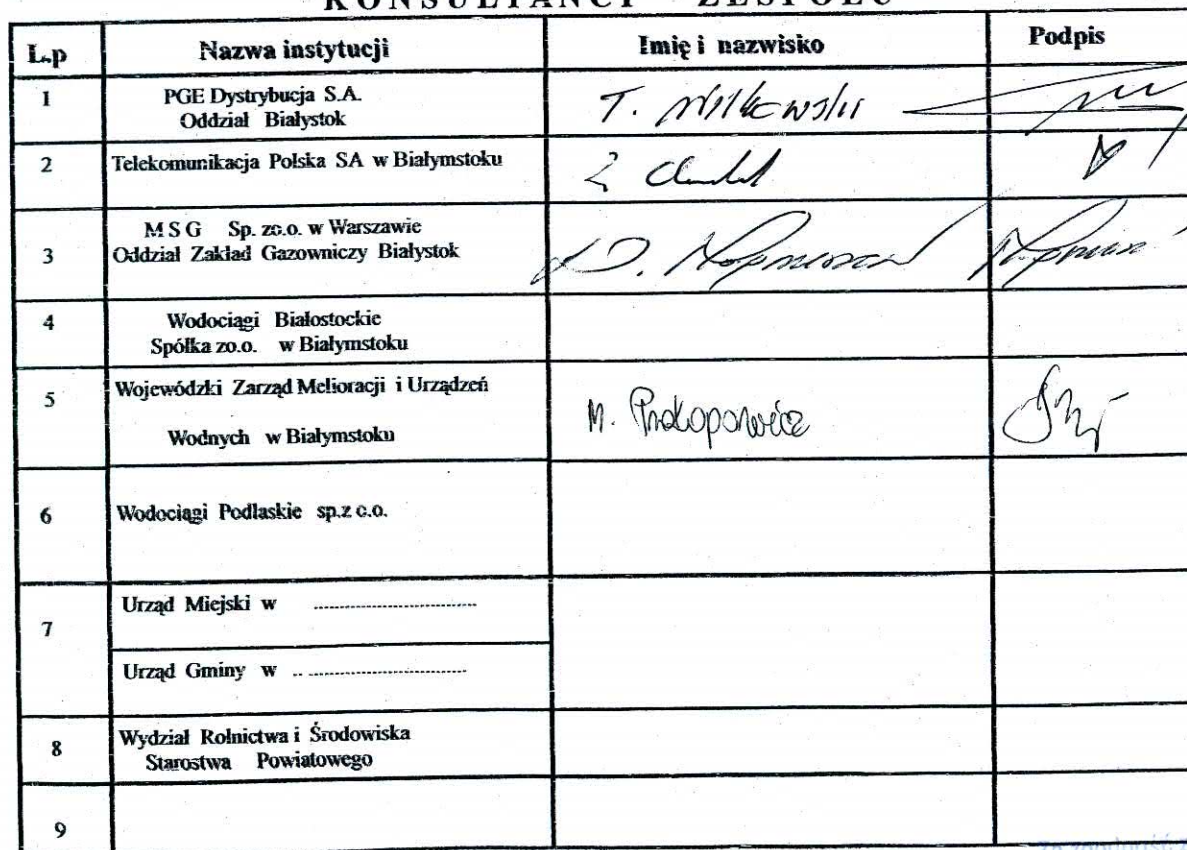 KONSULTANCI ZESPOŁU
L.p Nazwa instytucji Imię i nazwisko Podpis
1 PGE Dystrybucja S.A.
Oddział Białystok
T.
2 Telekomunikacja Polska SA w Białymstoku
3 M S G Sp. zo.o. w Warszawie
Oddział Zakład Gazowniczy Białystok
D.
4 Wodociągi Białostockie
Spółka zo.o. w Białymstoku
5 Wojewódzki Zarząd Melioracji i Urządzeń
Wodnych w Białymstoku
M. Prokopowicz
6 Wodociągi Podlaskie sp.z o.o.
7 Urząd Miejski w ..............................
Urząd Gminy w .. .............................
8 Wydział Rolnictwa i Środowiska
Starostwa Powiatowego
9